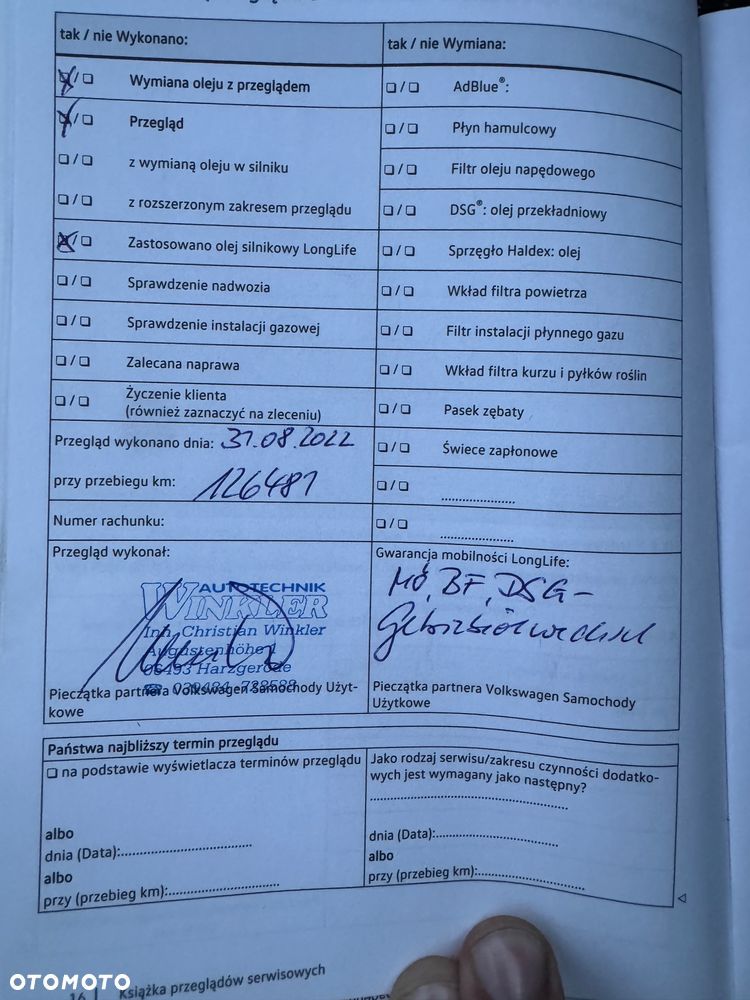 tak / nie Wykonano:
☐/☐ Wymiana oleju z przeglądem
☐/☐ Przegląd
☐/☐ z wymianą oleju w silniku
☐/☐ z rozszerzonym zakresem przeglądu
☐/☐ Zastosowano olej silnikowy LongLife
☐/☐ Sprawdzenie nadwozia
☐/☐ Sprawdzenie instalacji gazowej
☐/☐ Zalecana naprawa
☐/☐ Życzenie klienta
(również zaznaczyć na zleceniu)
Przegląd wykonano dnia: 31.08.2022
przy przebiegu km: 126481
Numer rachunku:
Przegląd wykonał:
AUTOTECHNIK
WINKLER
Inh. Christian Winkler
Augustenhöhe 1
06493 Harzgerode
☎ 039484
Pieczątka partnera Volkswagen Samochody Użyt-
kowe
tak / nie Wymiana:
☐/☐ AdBlue®:
☐/☐ Płyn hamulcowy
☐/☐ Filtr oleju napędowego
☐/☐ DSG®: olej przekładniowy
☐/☐ Sprzęgło Haldex: olej
☐/☐ Wkład filtra powietrza
☐/☐ Filtr instalacji płynnego gazu
☐/☐ Wkład filtra kurzu i pyłków roślin
☐/☐ Pasek zębaty
☐/☐ Świece zapłonowe
☐/☐ ....................
☐/☐ ....................
Gwarancja mobilności LongLife:
BF, DSG-
Getriebeölwechsel
Pieczątka partnera Volkswagen Samochody
Użytkowe
Państwa najbliższy termin przeglądu
☐ na podstawie wyświetlacza terminów przeglądu
albo
dnia (Data):....................
albo
przy (przebieg km):....................
Jako rodzaj serwisu/zakresu czynności dodatko-
wych jest wymagany jako następny?
....................
dnia (Data):....................
albo
przy (przebieg km):....................
16 Książka przeglądów serwisowych
OTOMOTO